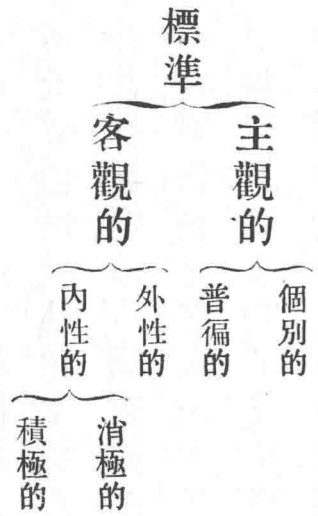 標準
主觀的
客觀的
個別的
普徧的
外性的
內性的
消極的
積極的